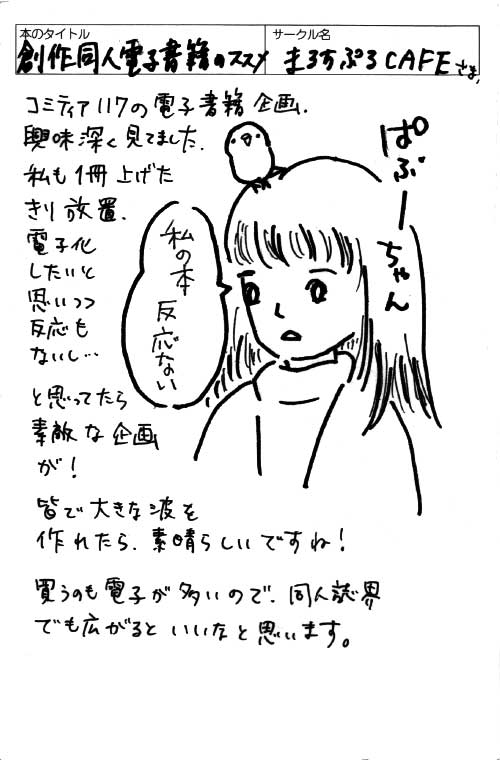 本のタイトル
創作同人電子書籍のススメ
サークル名
まるちぷるCAFEさま,
コミティア117の電子書籍企画、
興味深く見てました。
私も1冊上げた
きり放置、
電子化
したいと
思いつつ
反応も
ないし…
と思ってたら
素敵な企画
が!
皆で大きな波を
作れたら、素晴らしいですね!
買うのも電子が多いので、同人誌界
でも広がるといいなと思います。
ぱぶーちゃん
私の本
反応ない